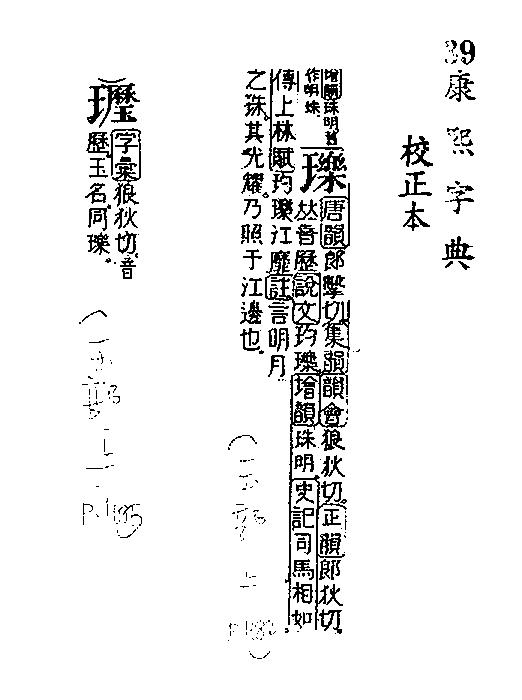 39
康熙字典
校正本
增韻珠明皆
作明珠
瓅唐韻郎擊切集韻韻會狼狄切正韻郎狄切
𠀤音歷說文玓瓅增韻珠明史記司馬相如
傳上林賦玓瓅江靡註言明月
之珠其光耀乃照于江邊也
瓑字彙狼狄切音
歷玉名同瓅